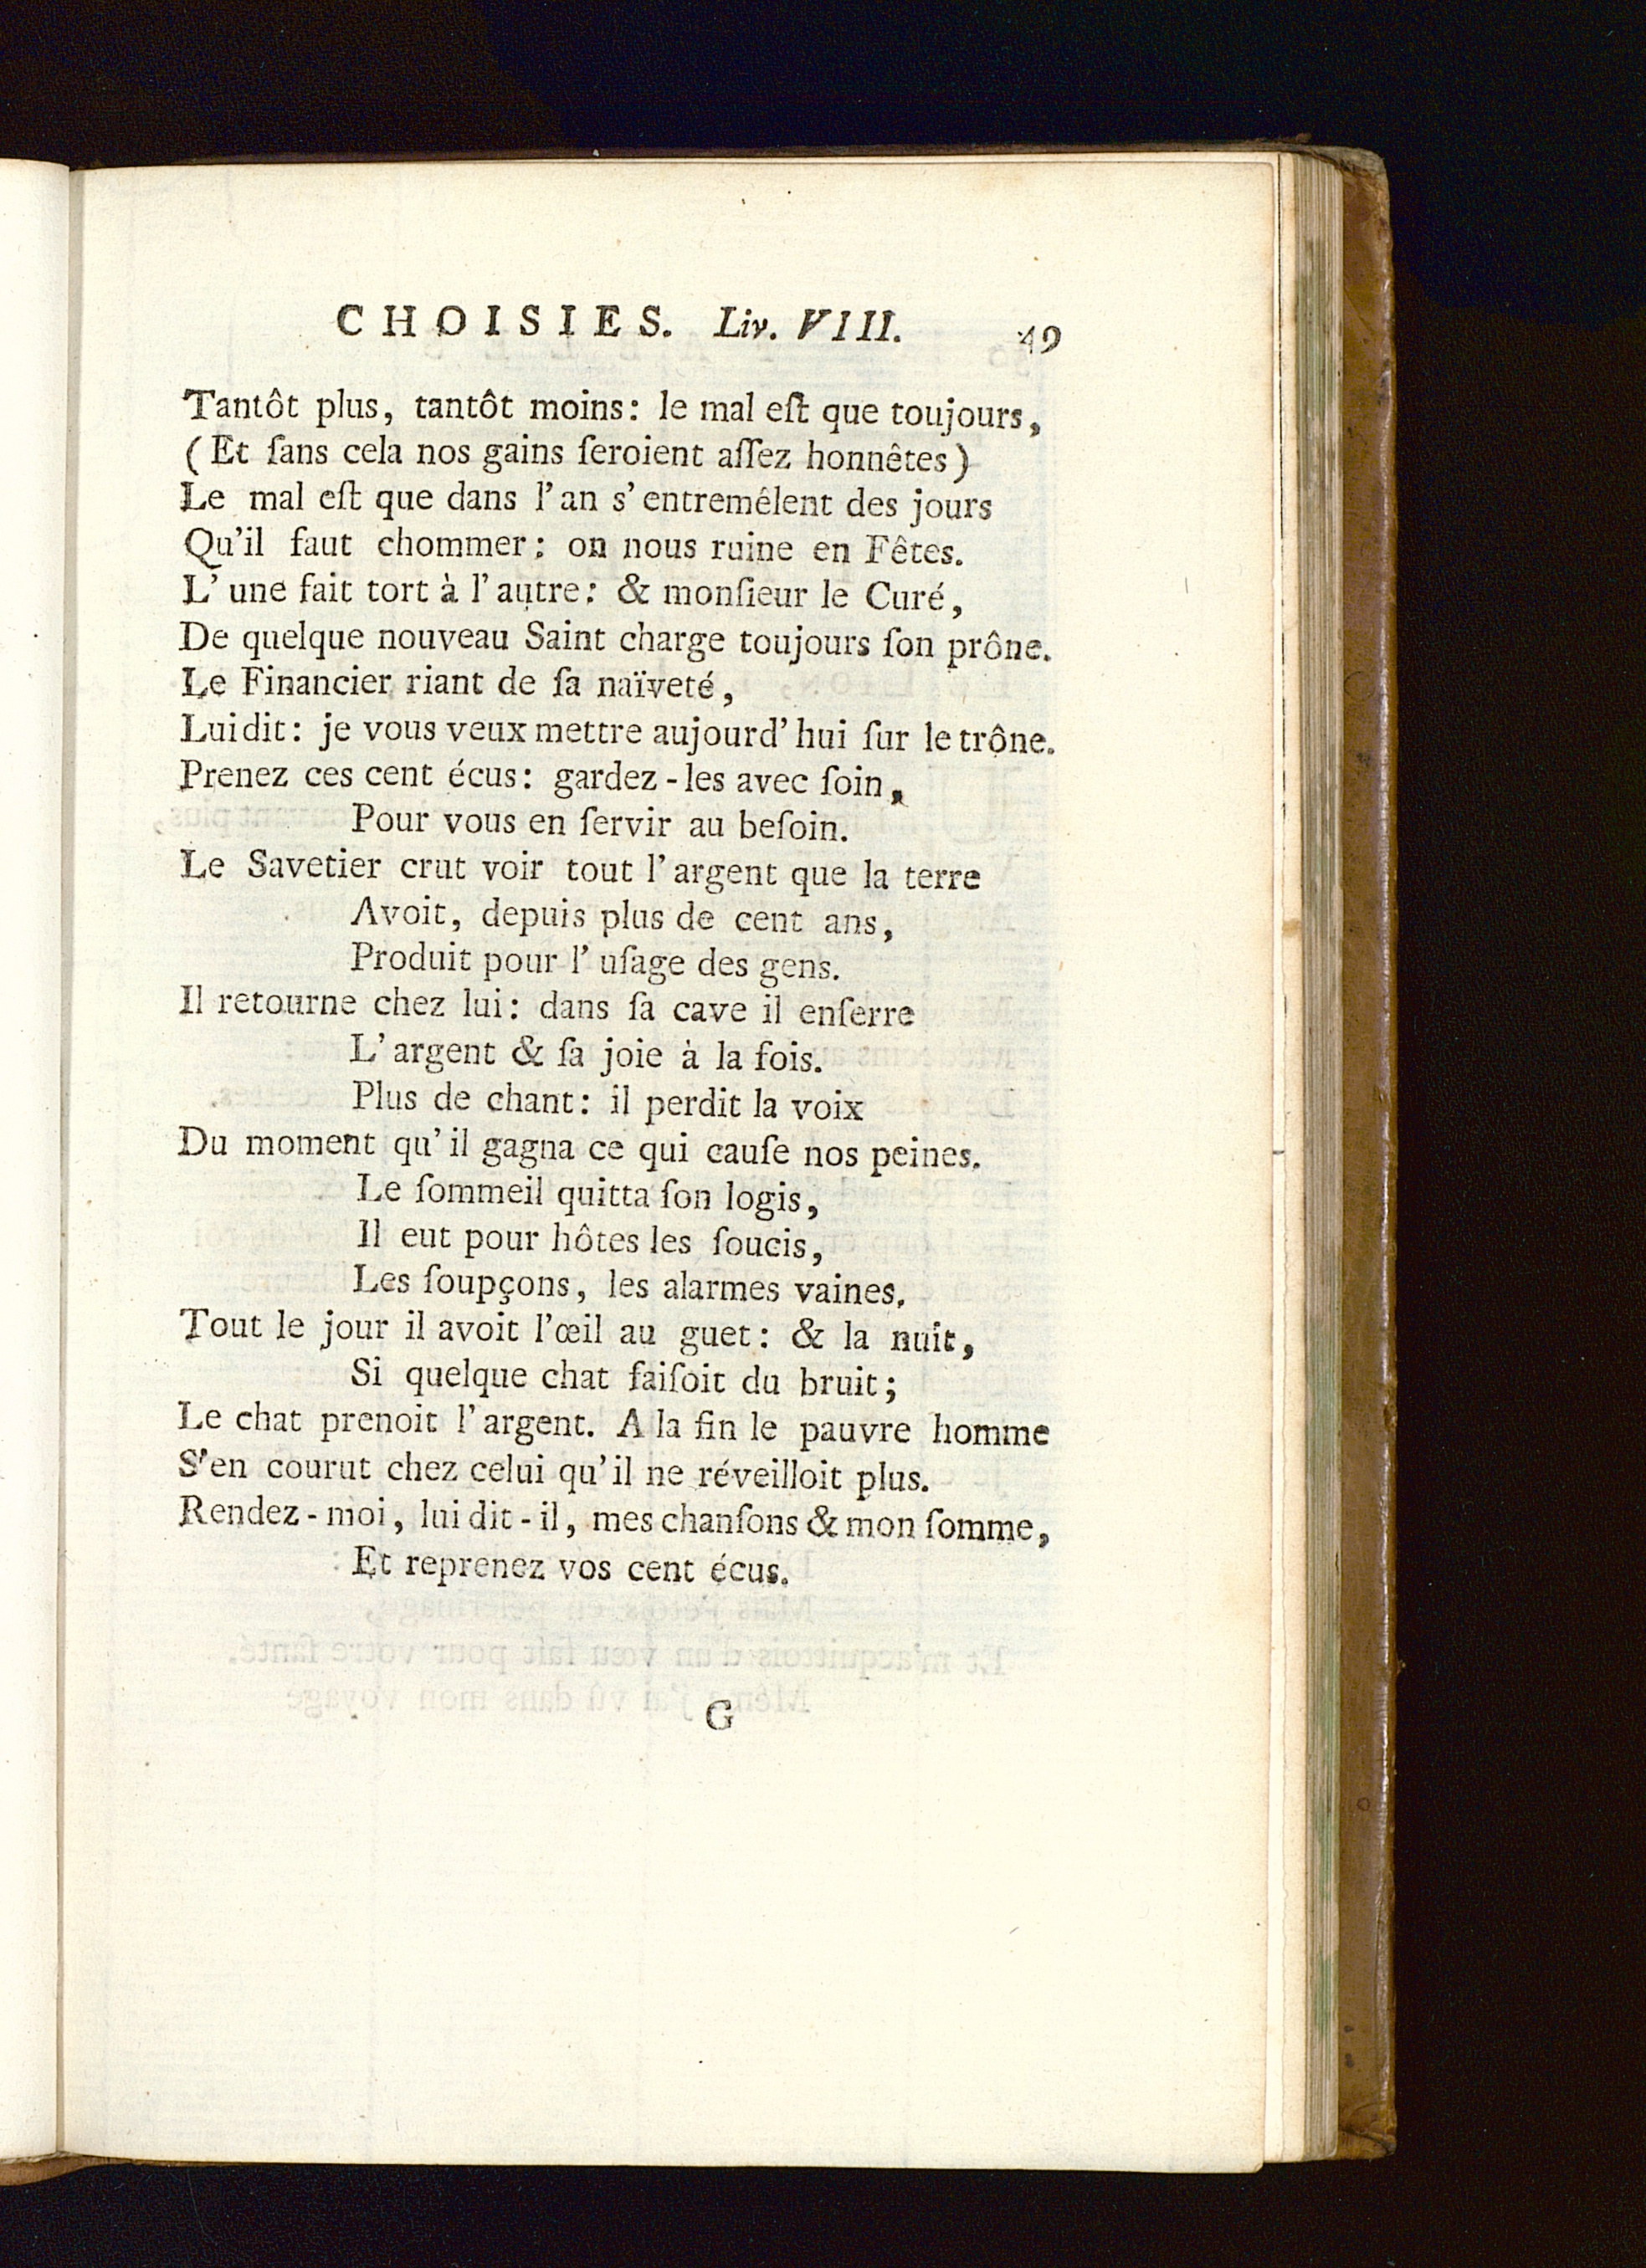 CHOISIES. Liv. VIII. 49
Tantôt plus, tantôt moins: le mal eſt que toujours,
(Et ſans cela nos gains ſeroient aſſez honnêtes)
Le mal eſt que dans l'an s'entremêlent des jours
Qu'il faut chommer: on nous ruine en Fêtes.
L'une fait tort à l'autre: & monſieur le Curé,
De quelque nouveau Saint charge toujours ſon prône.
Le Financier riant de ſa naïveté,
Lui dit: je vous veux mettre aujourd'hui ſur le trône.
Prenez ces cent écus: gardez-les avec ſoin,
Pour vous en ſervir au beſoin.
Le Savetier crut voir tout l'argent que la terre
Avoit, depuis plus de cent ans,
Produit pour l'uſage des gens.
Il retourne chez lui: dans ſa cave il enſerre
L'argent & ſa joie à la fois.
Plus de chant: il perdit la voix
Du moment qu'il gagna ce qui cauſe nos peines.
Le ſommeil quitta ſon logis,
Il eut pour hôtes les ſoucis,
Les ſoupçons, les alarmes vaines.
Tout le jour il avoit l'œil au guet: & la nuit,
Si quelque chat faiſoit du bruit;
Le chat prenoit l'argent. A la fin le pauvre homme
S'en courut chez celui qu'il ne réveilloit plus.
Rendez-moi, lui dit-il, mes chanſons & mon ſomme,
Et reprenez vos cent écus.
G